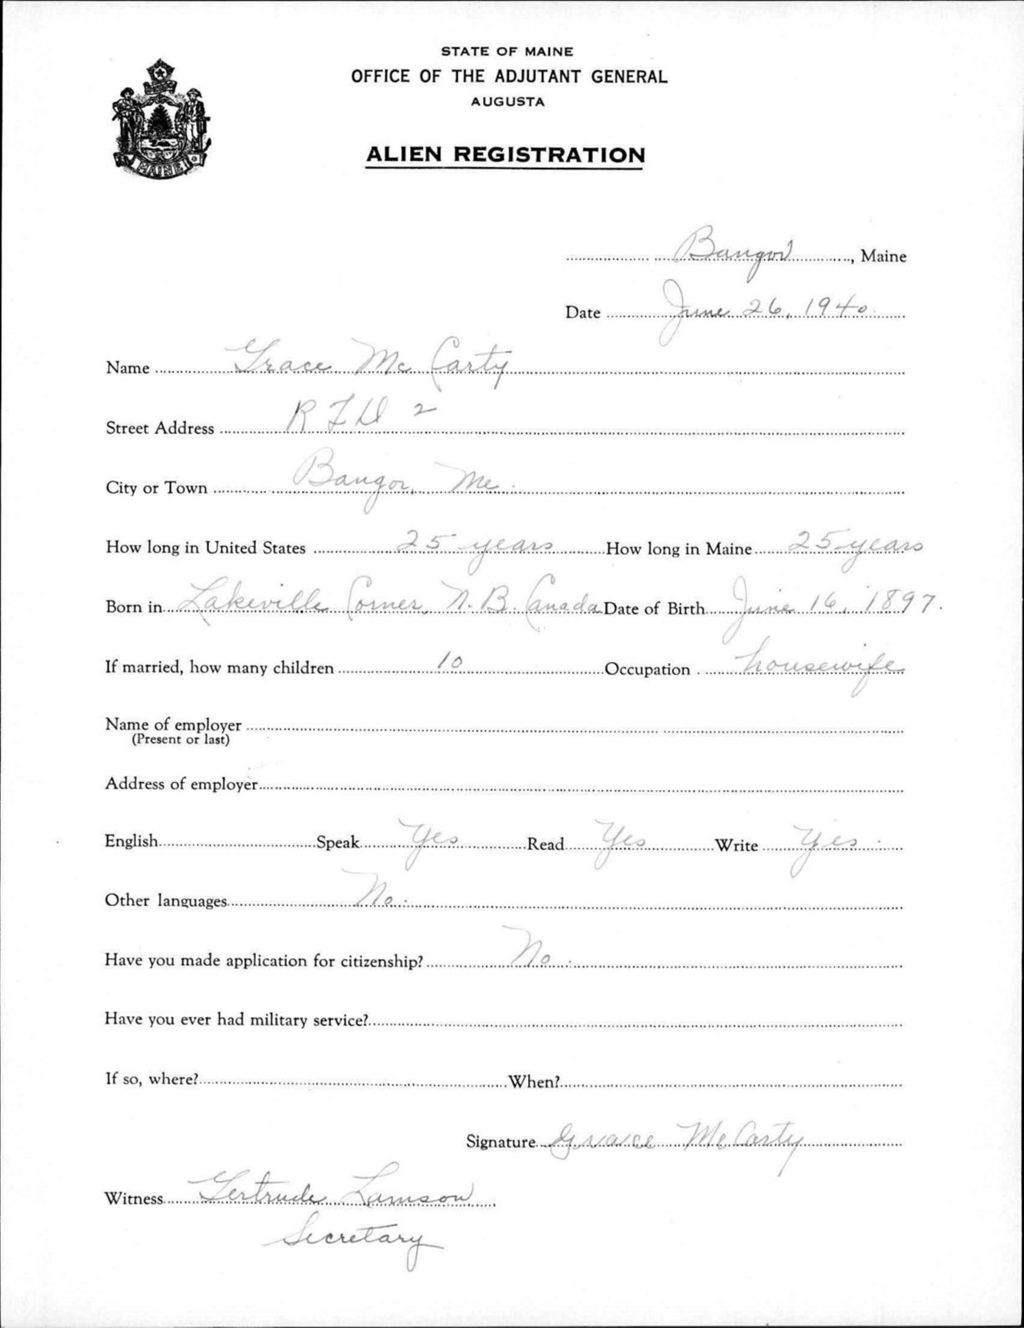 STATE OF MAINE
OFFICE OF THE ADJUTANT GENERAL
AUGUSTA
ALIEN REGISTRATION
MAINE
Bangor, Maine
Date June 26, 1940
Name Grace McCarty
Street Address RFD 2
City or Town Bangor, Me.
How long in United States 25 years How long in Maine 25 years
Born in Lakeville Corner, N.B. Canada Date of Birth June 16, 1897.
If married, how many children 10 Occupation housewife
Name of employer
(Present or last)
Address of employer
English Speak Yes Read Yes Write Yes.
Other languages No.
Have you made application for citizenship? No.
Have you ever had military service?
If so, where? When?
Signature Grace McCarty
Witness Gertrude Lamson
Secretary